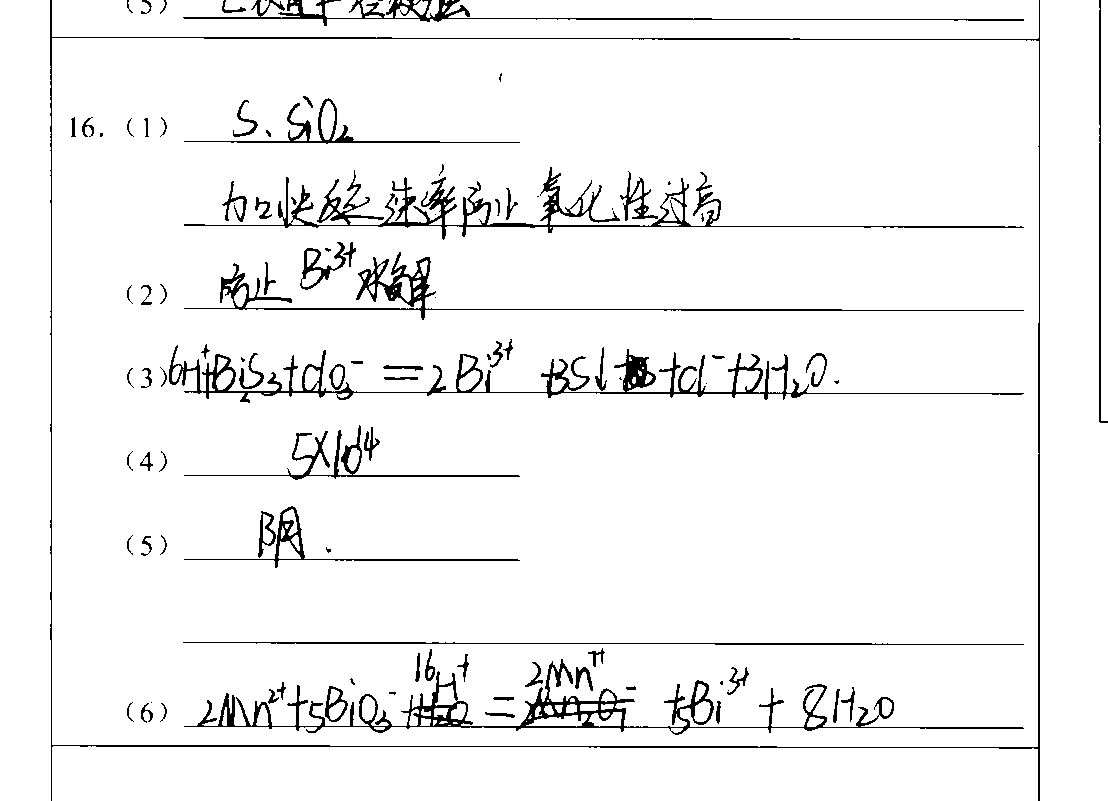 (5)
16. (1) S、SiO₂
加快反应速率防止氧化性过高
(2) 防止Bi³⁺水解
(3) 6H⁺+Bi₂S₃+ClO₃⁻=2Bi³⁺+3S↓+Cl⁻+3H₂O.
(4) 5×10⁴
(5) 阴.
(6) 2Mn²⁺+5BiO₃⁻+16H⁺=2Mn⁷⁺+5Bi³⁺+8H₂O